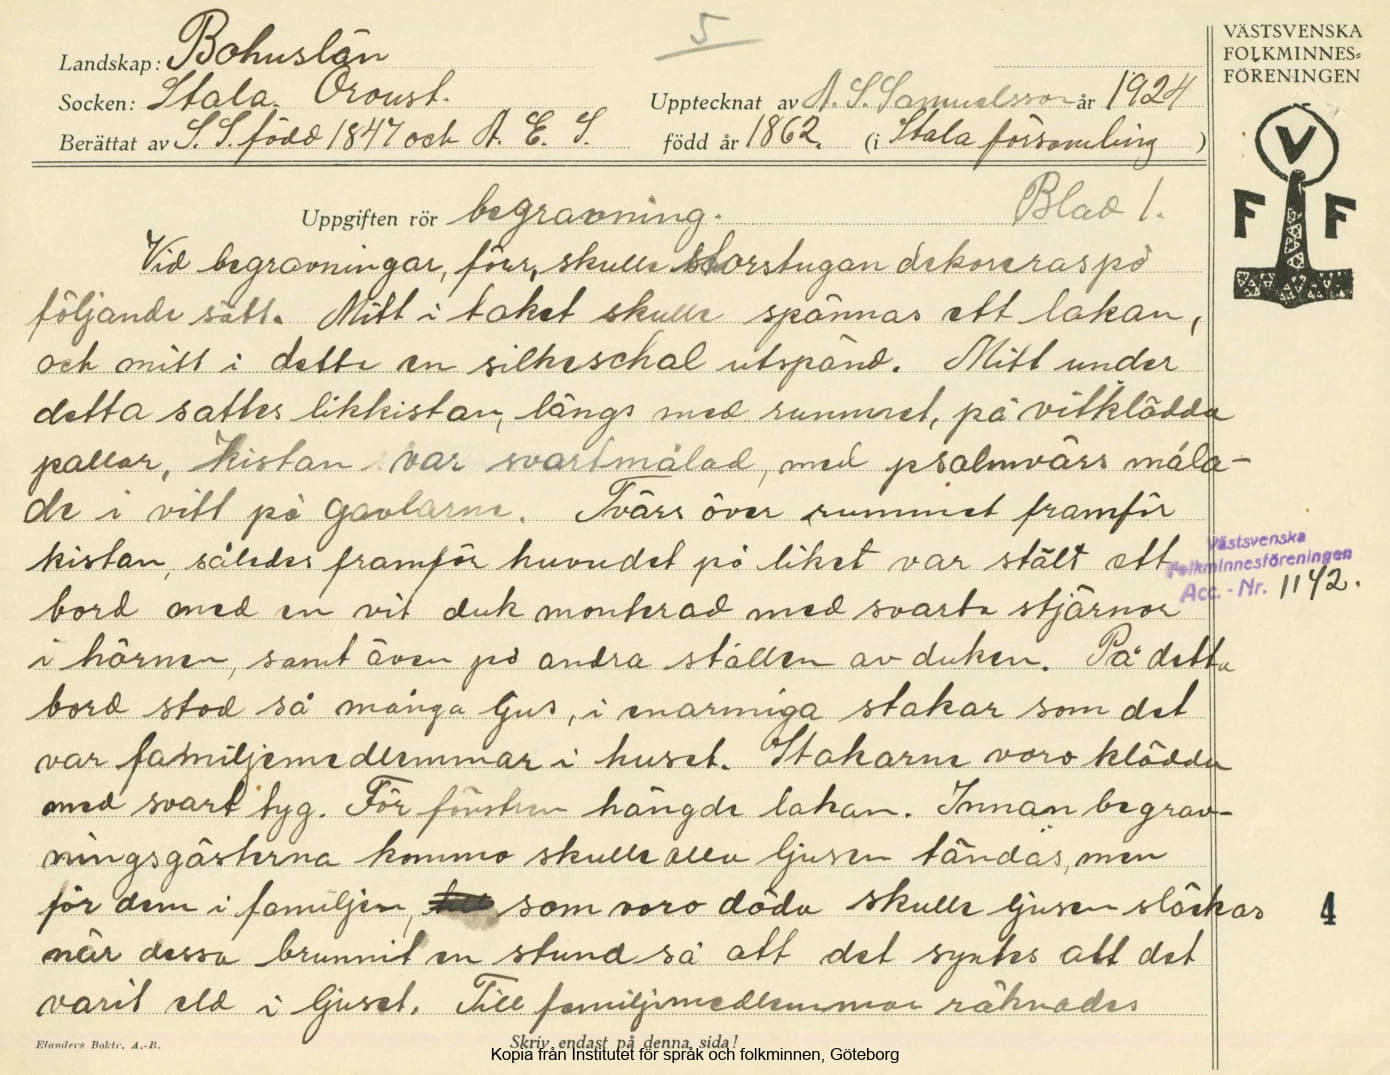 5
VÄSTSVENSKA
FOLKMINNES=
FÖRENINGEN
Landskap: Bohuslän
Socken: Stala. Oroust.
Upptecknat av A. S. Samuelsson år 1924
Berättat av S. S. född 1847 och A. E. S.
född år 1862. (i Stala församling )
V
F F
Uppgiften rör begravning.
Blad 1.
Vid begravningar, förr, skulle storstugan dekoreras på
följande sätt. Mitt i taket skulle spännas ett lakan,
och mitt i detta en silkeschal utspänd. Mitt under
detta sattes likkistan, längs med rummet, på vitklädda
pallar, Kistan var svartmålad, med psalmvärs måla-
de i vitt på gavlarne. Tvärs över rummet framför
kistan, således framför huvudet på liket var stält ett
bord med en vit duk monterad med svarta stjärnor
i hörnen, samt även på andra ställen av duken. På detta
bord stod så många ljus, i enarmiga stakar som det
var familjemedlemmar i huset. Stakarne voro klädda
med svart tyg. För fönstren hängde lakan. Innan begrav-
ningsgästerna kommo skulle alla ljusen tändas, men
för dem i familjen, som voro döda skulle ljusen släckas
när dessa brunnit en stund så att det syntes att det
varit eld i ljuset. Till familjemedlemmar räknades
Västsvenska
Folkminnesföreningen
Acc. - Nr. 1142.
4
Elanders Boktr. A.-B.
Skriv endast på denna sida!
Kopia från Institutet för språk och folkminnen, Göteborg